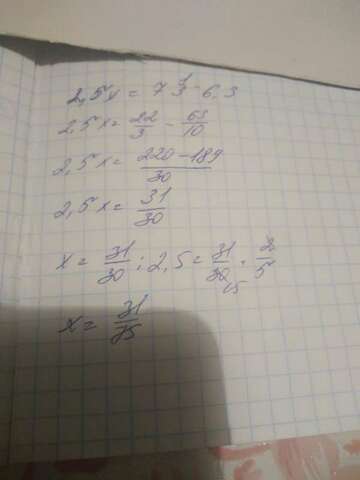 2,5x = 7 1/3 - 6,3
2,5x = 22/3 - 63/10
2,5x = 220 - 189/30
2,5x = 31/30
x = 31/30 : 2,5 = 31/30 · 2/5
15
x = 31/75